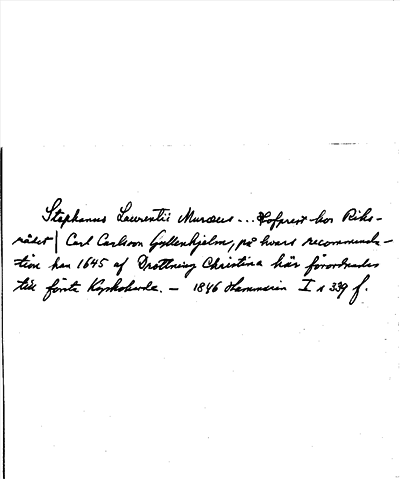 Stephanus Laurentii Muræus... Hofprest hos Riks-
rådet | Carl Carlsson Gyllenhjelm, på hvars recommenda-
tion han 1645 af Drottning Christina här förordnades
till förste Kyrkoherde. — 1846 Hammarin I s 339 f.